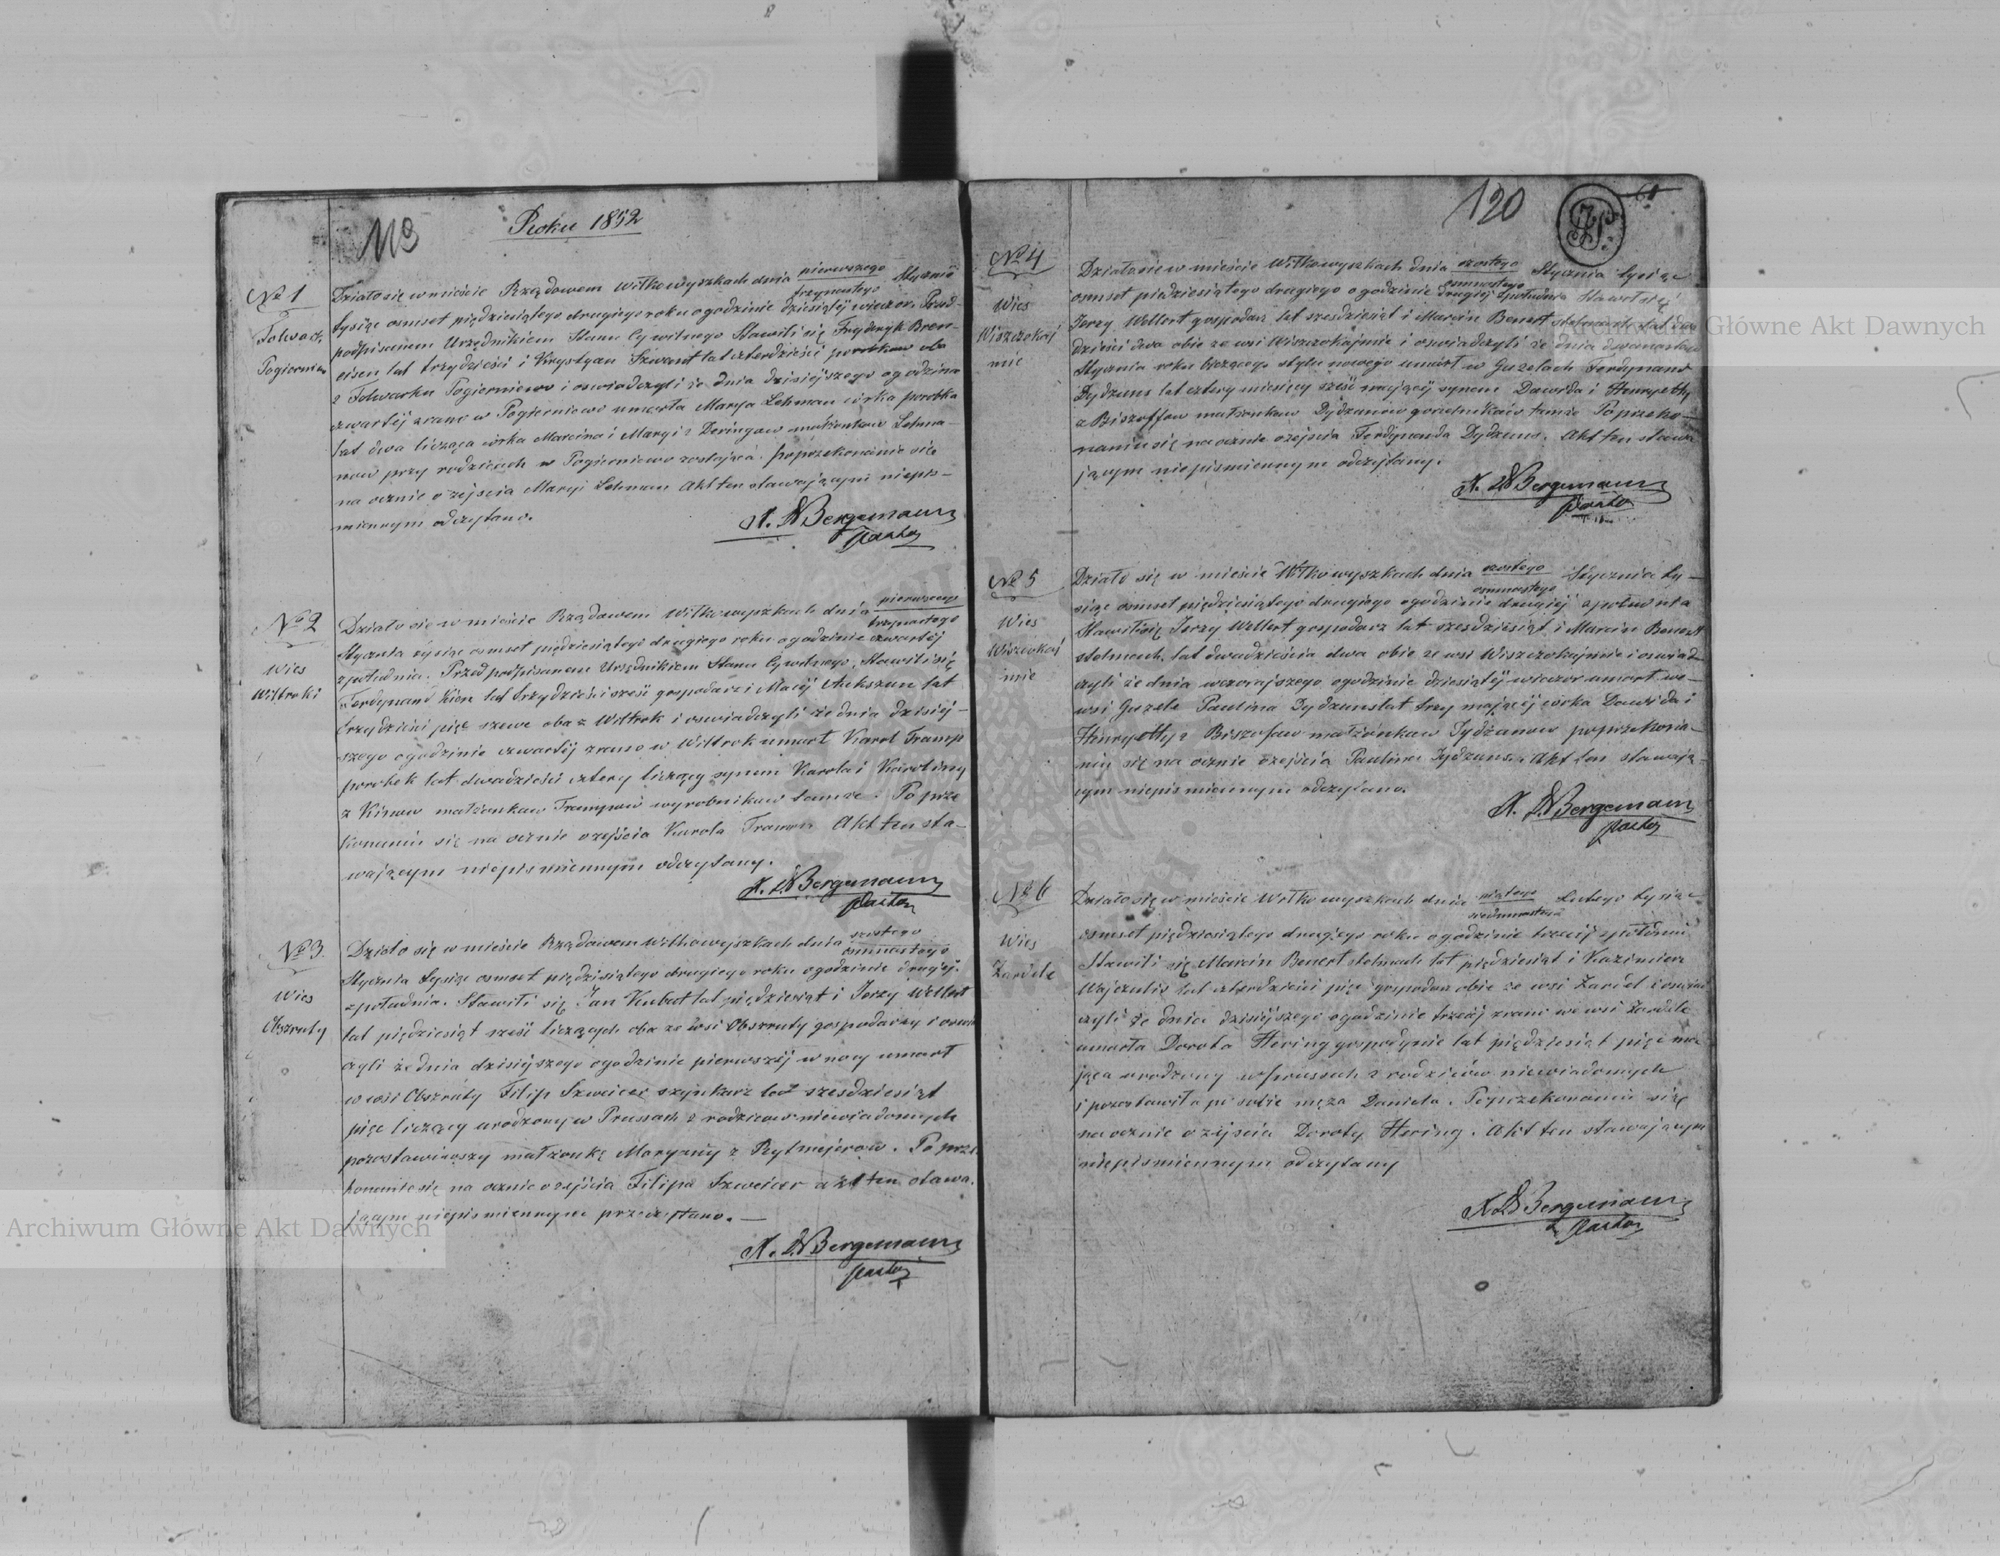 119
Roku 1852
№ 1
Folwark
Pogierniewo
Działo się w mieście Rządowem Wiłkowyszkach dnia pierwszego/trzynastego Stycznia
tysiąc osmset pięddziesiątego drugiego roku o godzinie dziesiątej wieczor. Przed
podpisanem Urzędnikiem Stanu Cywilnego Stawili się Fryderyk
lat trzydzieści i Krystyan Szwant lat czterdzieści parobkow oba
z Folwarku Pogierniewo i oswiadczyli że dnia dzisiejszego o godzinie
czwartej zrana w Pogierniewo umarła Marya Lehman córka parobka
lat dwa licząca córka Marcina i Maryi z Deringow małżonkow Lehma-
now przy rodzicach w Pogierniewo zostająca. po przekonaniu się
na ocznie o zejscia Maryi Lehman Akt ten stawającym niepis-
miennym odczytano.
A. W Bergemann
Pastor
№ 2
Wies
Wiltroki
Działo się w mieście Rządowem Wiłkowyszkach dnia pierwszego/trzynastego
Stycznia tysiąc osmset pięddziesiątego drugiego roku o godzinie czwartej
z południa. Przed podpisanem Urzędnikiem Stanu Cywilnego, Stawili się
Ferdynand Kien lat trzydzieści sześć gospodarz i Maciej lat
trzydzieści pięć szewc oba z Wiltrok i oswiadczyli że dnia dzisiej-
szego o godzinie czwartej zrana w Wiltrok umarł Karol Tramp
parobek lat dwadzieści cztery liczący synem Karola i Karoliny
z małżonkow Trampow wyrobnikow tamże. Po prze
konaniu się na ocznie o zejścia Karola Tramp Akt ten sta-
wającym niepismiennym odczytany.
A. W Bergemann
Pastor
№ 3.
Wies
Obszruty
Działo się w mieście Rządowem Wiłkowyszkach dnia szostego/osmnastego
Stycznia tysiąc osmset pięddziesiątego drugiego roku o godzinie drugiej
z południa. Stawili się Jan Kubat lat pięddziesiąt i Jerzy Wellert
lat pięddziesiąt sześć liczących oba ze wsi Obszruty gospodarzy i oswiad
czyli że dnia dzisiejszego o godzinie pierwszej w nocy umarł
w wsi Obszruty Filip Szweicer szynkarz lat szesdziesiąt
pięc liczący urodzony w Prussach z rodzicow niewiadomych
pozostawiwszy małżonkę Maryanny z Rytmejerow. Po prze
konanie się na ocznie o zejścia Filipa Szweicer akt ten stawa-
jącym niepismiennym przeczytano. —
A. W Bergemann
Pastor
120
№ 4
Wies
Wiszczokaj
mie
Działo się w mieście Wiłkowyszkach dnia szostego/osmnastego Stycznia tysiąc
osmset pięddziesiątego drugiego o godzinie drugiej z południa Stawili się
Jerzy Wellert gospodarz lat szesdziesiąt i Marcin Benert stelmach lat dwa
dzieści dwa obie ze wsi Wiszczokajmie i oswiadczyli że dnia dwunastego
Stycznia roku bieżącego stylu nowego umarł w Guzelach Ferdynand
Dydzuns lat cztery miesięcy sześć mającej synem Dawida i Henryetty
z Biszoffow małżonkow Dydzunow tamże Po przeko-
naniu się na ocznie o zejścia Ferdynanda Dydzuns. Akt ten stawa
jącym niepismiennym odczytany.
A. W Bergemann
Pastor
№ 5
Wies
Wiszczokaj
mie
Działo się w mieście Wiłkowyszkach dnia szostego/osmnastego Stycznia ty-
siąc osmset pięddziesiątego drugiego o godzinie drugiej z południa
Stawili się Jerzy Wellert gospodarz lat szesdziesiąt i Marcin Benert
stelmach, lat dwadzieścia dwa obie ze wsi Wiszczokajmie i oswiad
czyli że dnia wczorajszego o godzinie dziesiątej wieczor umarł we
wsi Guzele Paulina Dydzuns lat trzy mającej córka Dawida i
Henryetty z Biszofow małżonkow Dydzunow po przekona-
niu się na ocznie o zejścia Paulina Dydzuns. Akt ten stawają-
cym niepismiennym odczytano.
A. W Bergemann
Pastor
№ 6
Wies
Żardele
Działo się w mieście Wiłkowyszkach dnia piątego/siedmnastego Lutego tysiąc
osmset pięddziesiątego drugiego roku o godzinie trzeciej z południa
Stawili się Marcin Benert stelmach lat pięddziesiąt i Kazimierz
lat czterdzieści pięc gospodarz obie ze wsi Żardel i oswiad
czyli że dnia dzisiejszego o godzinie trzeciej zrana we wsi Żardele
umarła Dorota Hering gospodynie lat pięddziesiąt pięc ma
jąca urodzony w Prussach z rodzicow niewiadomych
i pozostawiła po sobie męża Daniela. Po przekonaniu się
na ocznie o zejścia Doroty Hering. Akt ten stawającym
niepismiennym odczytany
A. W Bergemann
Pastor
Archiwum Główne Akt Dawnych
Główne Akt Dawnych